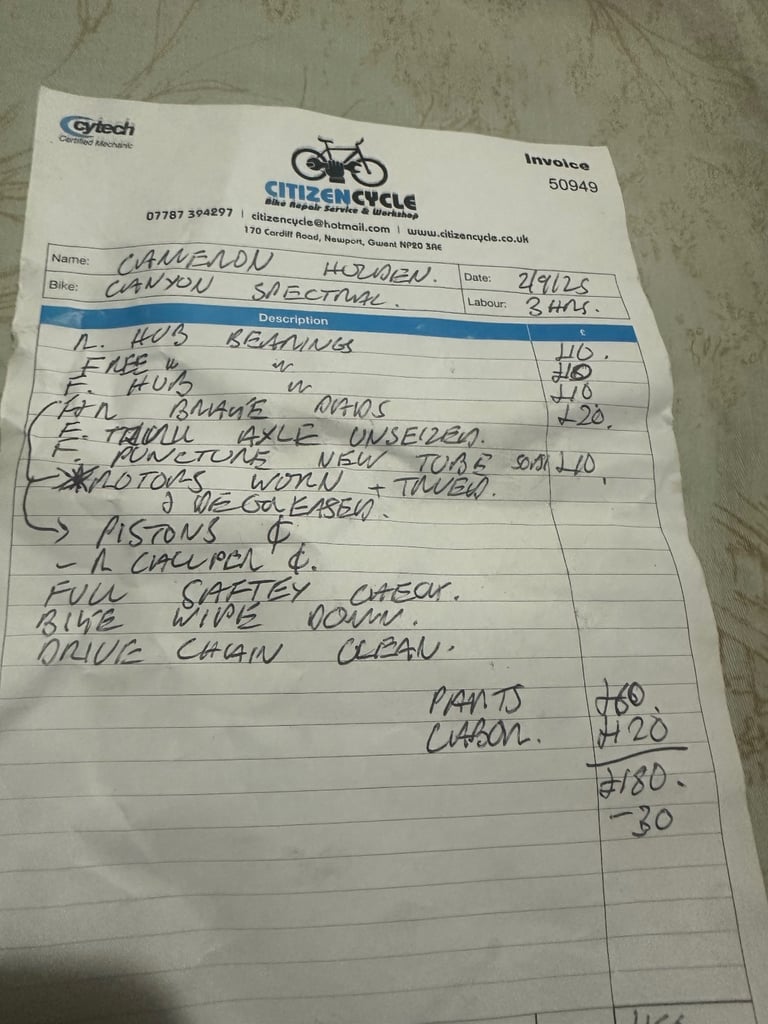 cytech
Certified Mechanic
Invoice
50949
CITIZENCYCLE
Bike Repair Service & Workshop
07787 394297 | citizencycle@hotmail.com | www.citizencycle.co.uk
170 Cardiff Road, Newport, Gwent NP20 3AE
Name: CAMERON HOLDEN. Date: 2/9/25
Bike: CANYON SPECTRAL. Labour: 3 HRS.
Description £
R. HUB BEARINGS £10.
FREE " " £10
F. HUB " £10
F+R BRAKE PADS £20.
F. THRU AXLE UNSEIZED.
F. PUNCTURE NEW TUBE £10.
* ROTORS WORN + TRUED.
& DEGREASED.
→ PISTONS ₵
- R CALLIPER ₵.
FULL SAFTEY CHECK.
BIKE WIPE DOWN.
DRIVE CHAIN CLEAN.
PARTS £60.
LABOR. £120
£180.
-30